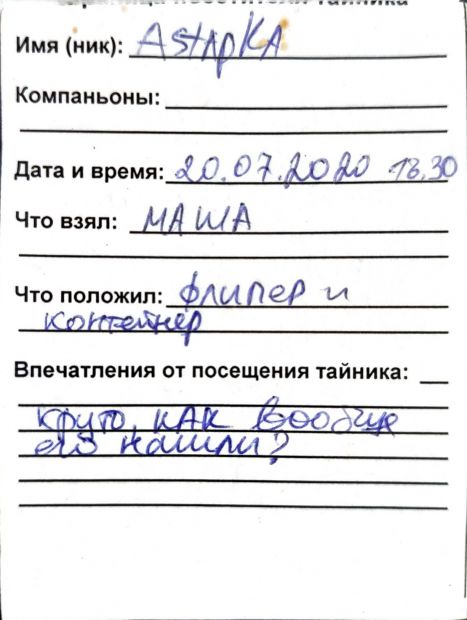 Имя (ник): AstapKA
Компаньоны:
Дата и время: 20.07.2020 13.30
Что взял: МАША
Что положил: флипер и
контейнер
Впечатления от посещения тайника:
круто, как вообще
его нашли?